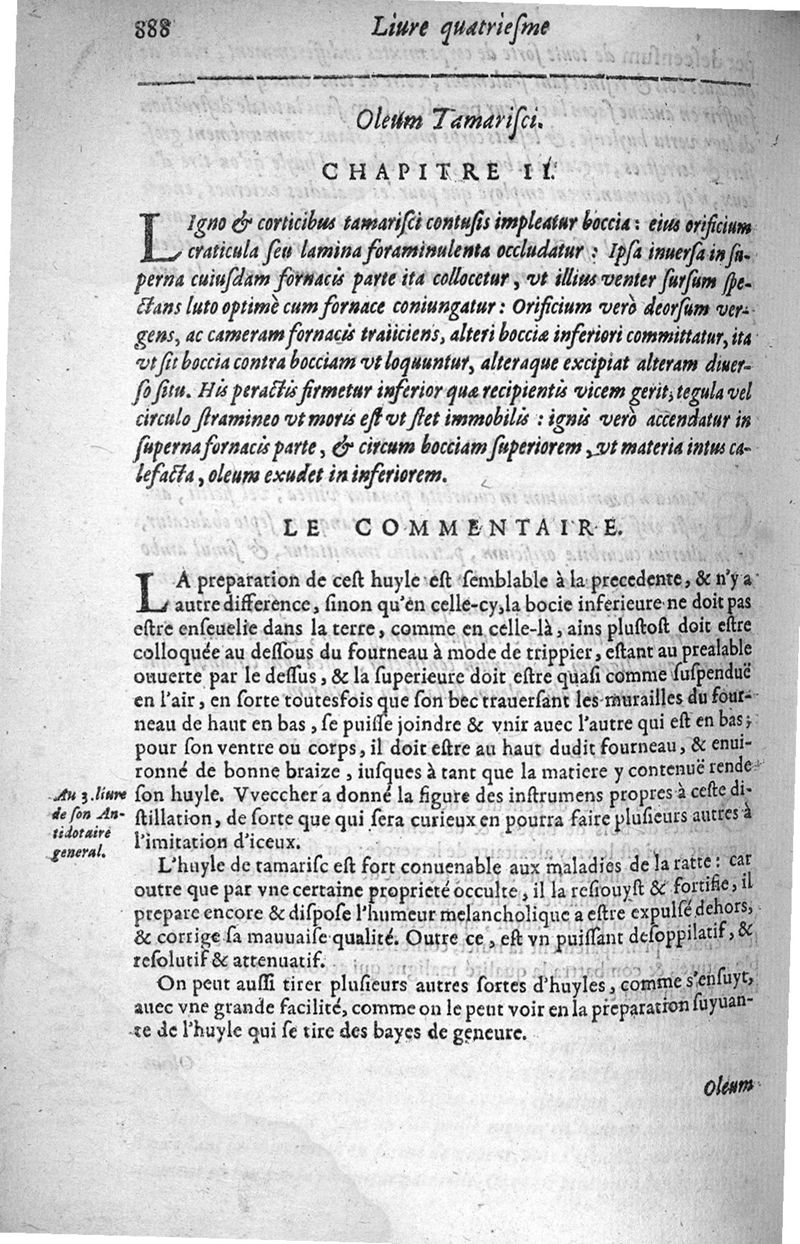 888 Liure quatriesme
Oleum Tamarisci.
CHAPITRE II.
LIgno & corticibus tamarisci contusis impleatur boccia: eius orificium
craticula seu lamina foraminulenta occludatur : Ipsa inuersa in su-
perna cuiusdam fornacis parte ita collocetur, vt illius venter sursum spe-
ctans luto optimè cum fornace coniungatur: Orificium verò deorsum ver-
gens, ac cameram fornacis traiiciens, alteri bocciæ inferiori committatur, ita
vt sit boccia contra bocciam vt loquuntur, alteraque excipiat alteram diuer-
so situ. His peractis firmetur inferior quæ recipientis vicem gerit, tegula vel
circulo stramineo vt moris est vt stet immobilis : ignis verò accendatur in
superna fornacis parte, & circum bocciam superiorem, vt materia intus ca-
lefacta, oleum exudet in inferiorem.
LE COMMENTAIRE.
LA preparation de cest huyle est semblable à la precedente, & n'y a
autre difference, sinon qu'en celle-cy, la bocie inferieure ne doit pas
estre enseuelie dans la terre, comme en celle-là, ains plustost doit estre
colloquée au dessous du fourneau à mode de trippier, estant au prealable
ouuerte par le dessus, & la superieure doit estre quasi comme suspenduë
en l'air, en sorte toutesfois que son bec trauersant les murailles du four-
neau de haut en bas, se puisse joindre & vnir auec l'autre qui est en bas;
pour son ventre ou corps, il doit estre au haut dudit fourneau, & enui-
ronné de bonne braize, iusques à tant que la matiere y contenuë rende
son huyle. Vveccher a donné la figure des instrumens propres à ceste di-
stillation, de sorte que qui sera curieux en pourra faire plusieurs autres à
l'imitation d'iceux.
Au 3. liure
de son An-
tidotaire
general.
L'huyle de tamarisc est fort conuenable aux maladies de la ratte: car
outre que par vne certaine proprieté occulte, il la resiouyst & fortifie, il
prepare encore & dispose l'humeur melancholique a estre expulsé dehors,
& corrige sa mauuaise qualité. Outre ce, est vn puissant desoppilatif, &
resolutif & attenuatif.
On peut aussi tirer plusieurs autres sortes d'huyles, comme s'ensuyt,
auec vne grande facilité, comme on le peut voir en la preparation suyuan-
te de l'huyle qui se tire des bayes de geneure.
Oleum